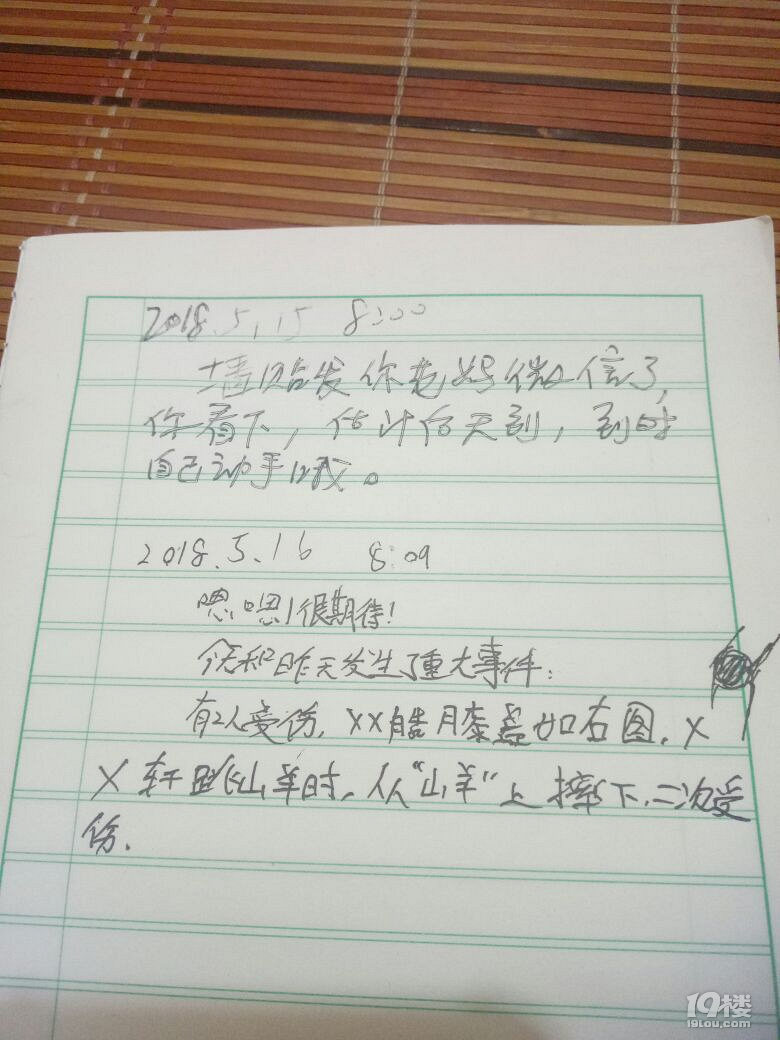 2018.5.15 8:00
墙贴发你老妈微信了,
你看下,估计后天到,到时
自己动手哦。
2018.5.16 8:09
嗯嗯!很期待!
今天和昨天发生了重大事件:
有2人受伤,XX皓膝盖如右图,X
X轩跳山羊时,从“山羊”上摔下,二次受
伤.
19楼
19lou.com